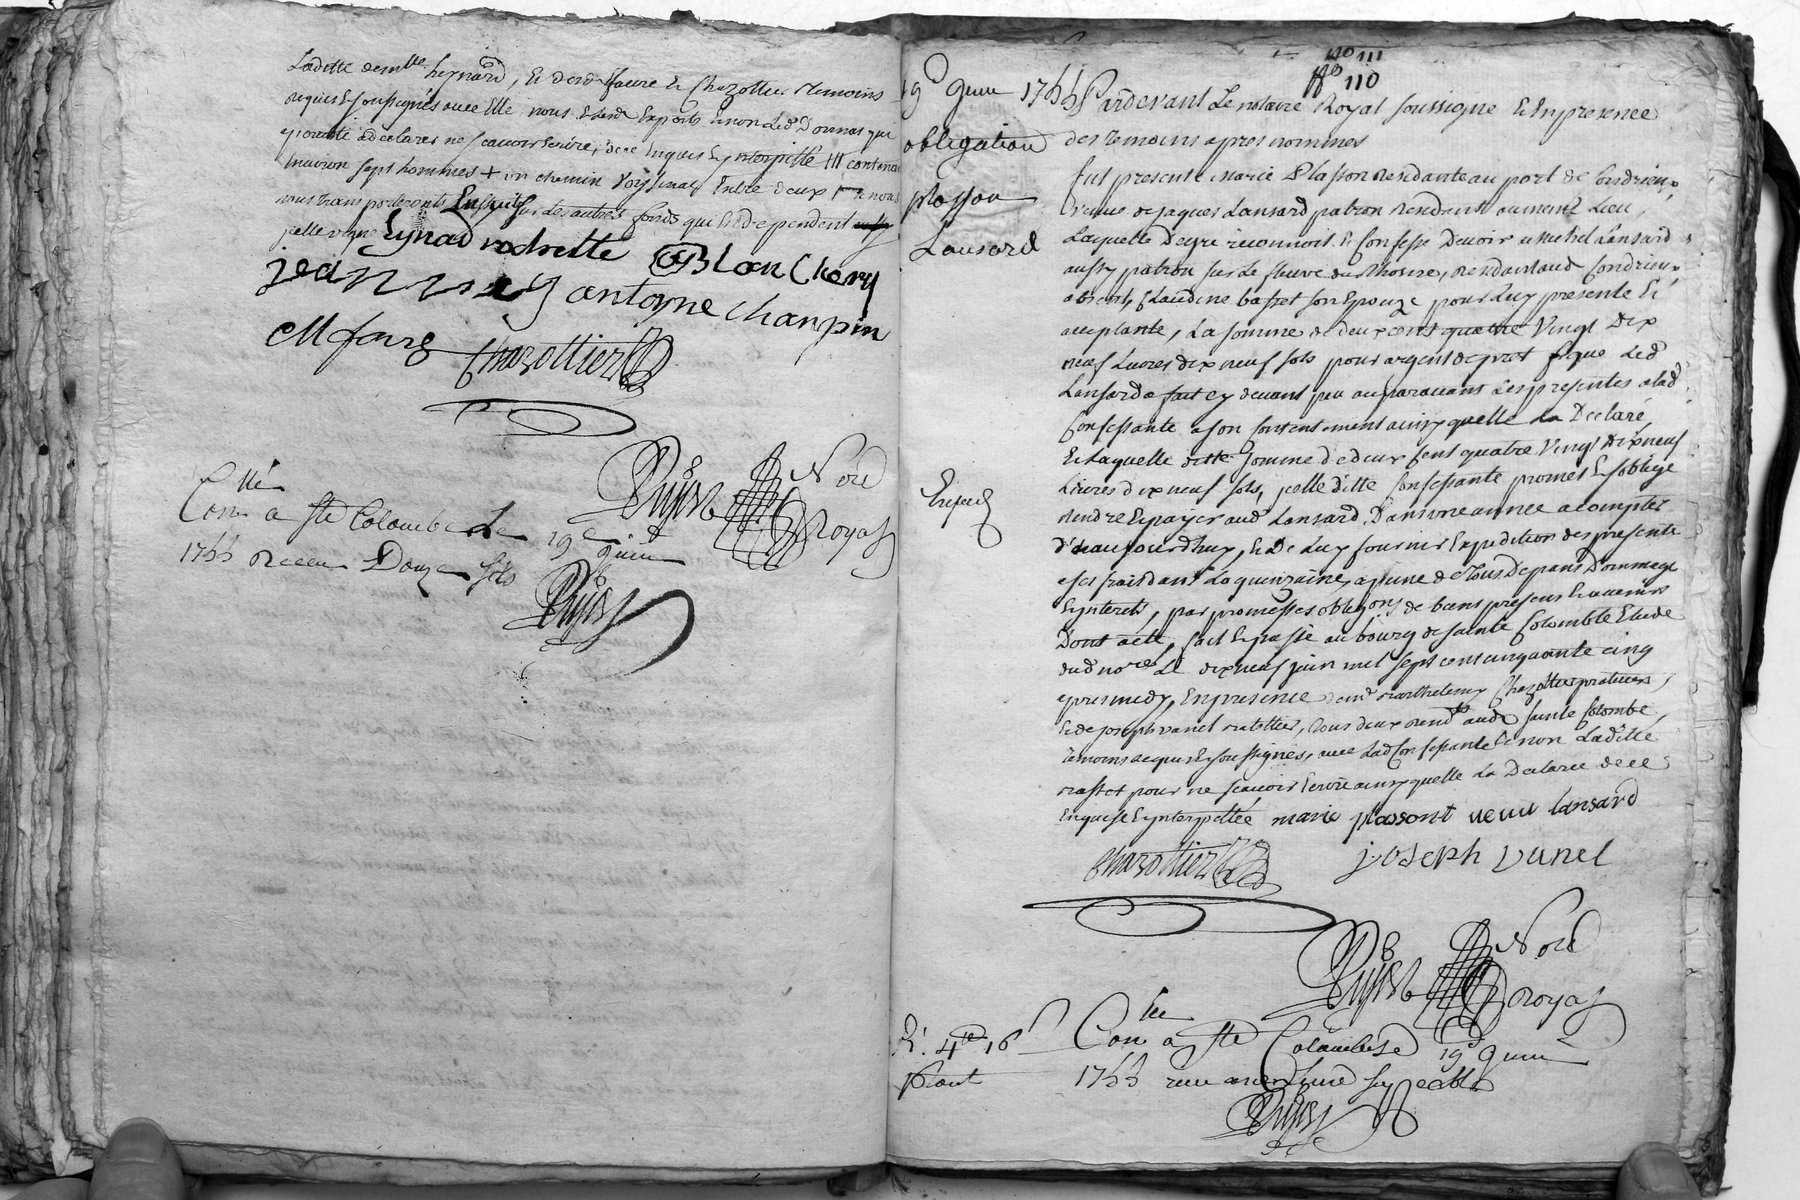 Laditte demlle heynard, Et desd. faure Et Chazottier temoins
requis Et soussignés avec Elle, nous Et led. Experts Et non led. Dornas qui
ne scavoir Ecrire, de ce Enquis Et ynterpellé +++ contenant
Environ sept hommes + un chemin voysinal Entre deux nous
nous transporterents Ensuitte sur Les autres fonds qui En dependent
Eynad rochette Blanchery
jean antoyne chanpin
M faure Chazottier
Pujol Nore Royal
Conllé a Ste Colombe Le 19e Juin
1755 Receu Douze sols
Pujol
No 111
No 110
19e Juin 1755
obligation
Plasson
Lansard
Pardevant Le notaire Royal soussigné Et En presence
des temoins apres nommes
fut presente Marie Plasson Rendante au port de Condrieu,
veuve de jaques Lansard patron Rendant aumeme Lieu,
Laquelle De gré reconnoit Et Confesse Devoir a Michel Lansard
aussy patron sur Le fleuve du Rhosne, Rendant aud. Condrieu
absent, Claudine basset son Epouze pour Luy presente Et
acceptante, La somme de deux cent quatre Vingt Dix
neuf Livres dix neuf sols pour argent de pret que Led.
Lansard a fait cy devant peu auparavant Les presentes a lad.
Confessante a son contentement ainsy quelle La Declaré
Et Laquelle ditte somme de deux cent quatre Vingt dix neuf
Livres dix neuf sols, jcelle ditte Confessante promet Et soblige
Rendre Et payer aud. Lansard Dans une année a compter
d'haujourdhuy, Et De Luy fournir Expedition des presente
a ses frais dans La quinzaine, a peine de Tous Depans Dommage
Et ynterets, par promesses obligons de biens presens Et avenirs
Dont acte, fait Et passé au bourg de sainte Colombe Etude
dud. nore Le dix neuf juin mil sept cent cinquante cinq
apres midy, En presence de Mr Barthelemy Chazottier praticien,
Et de joseph vanel ratellier, tous deux aud. sainte Colombe,
temoins requis Et soussignes, avec Lad. Confessante Et non Laditte
Basset pour ne scavoir Ecrire ainsy quelle La Declaree de ce
Enquise Et ynterpellée marie plasont veuve lansard
Chazottier joseph vanel
Pujol Nore Royal
Expedié
Conllé a Ste Colombe Le 19e Juin
1755
Pujol